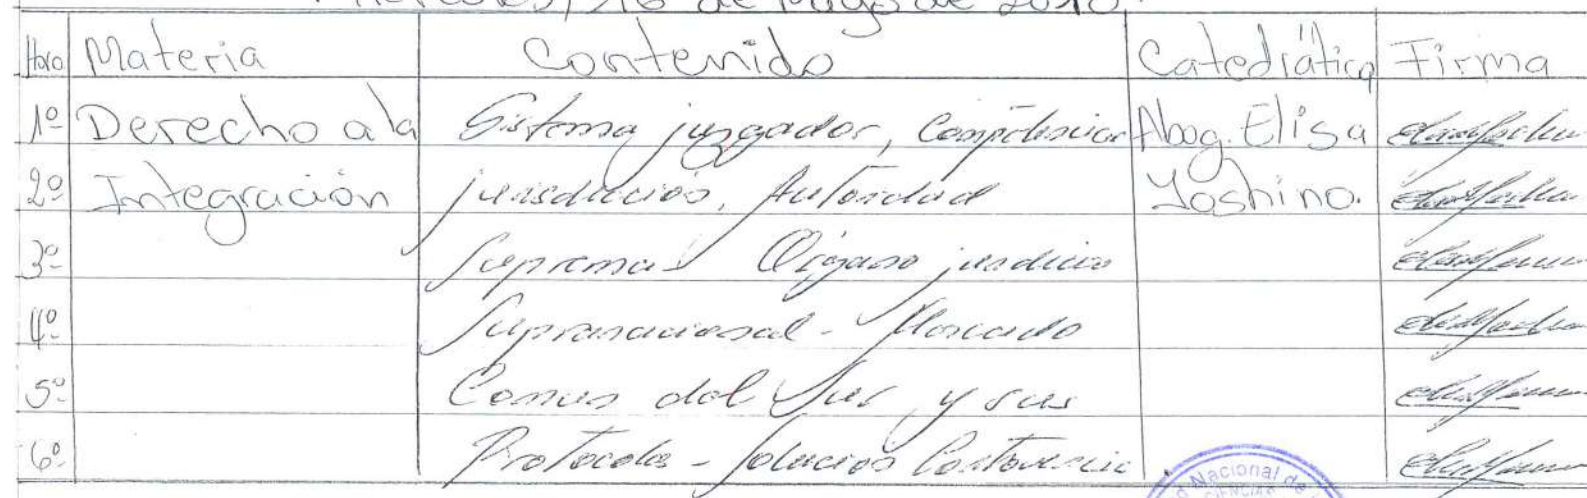 Miércoles, 16 de Mayo de 2018.
Hora Materia Contenido Catedrática Firma
1º Derecho a la Sistema juzgador, Competencia Abog. Elisa
2º Integración jurisdicción, Autoridad Yoshino.
3º Suprema Órgano jurídico
4º Supranacional - Mercado
5º Comun del Sur y sus
6º Protocolos - Solución Controversia
Nacional de
CIENCIAS